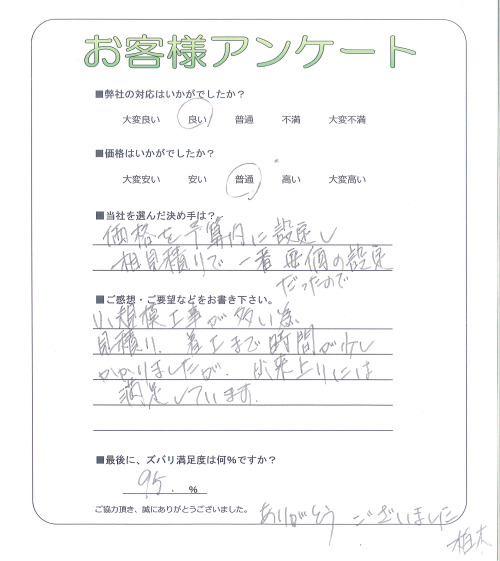 お客様アンケート
■弊社の対応はいかがでしたか？
大変良い 良い 普通 不満 大変不満
■価格はいかがでしたか？
大変安い 安い 普通 高い 大変高い
■当社を選んだ決め手は？
価格を予算内に設定し
相見積りで一番 価の設定
だったので
■ご感想・ご要望などをお書き下さい。
小規模工事が多い為
見積り、着工まで時間が少し
かかりましたが、出来上りには
満足しています。
■最後に、ズバリ満足度は何％ですか？
95. %
ご協力頂き、誠にありがとうございました。
ありがとう ございました